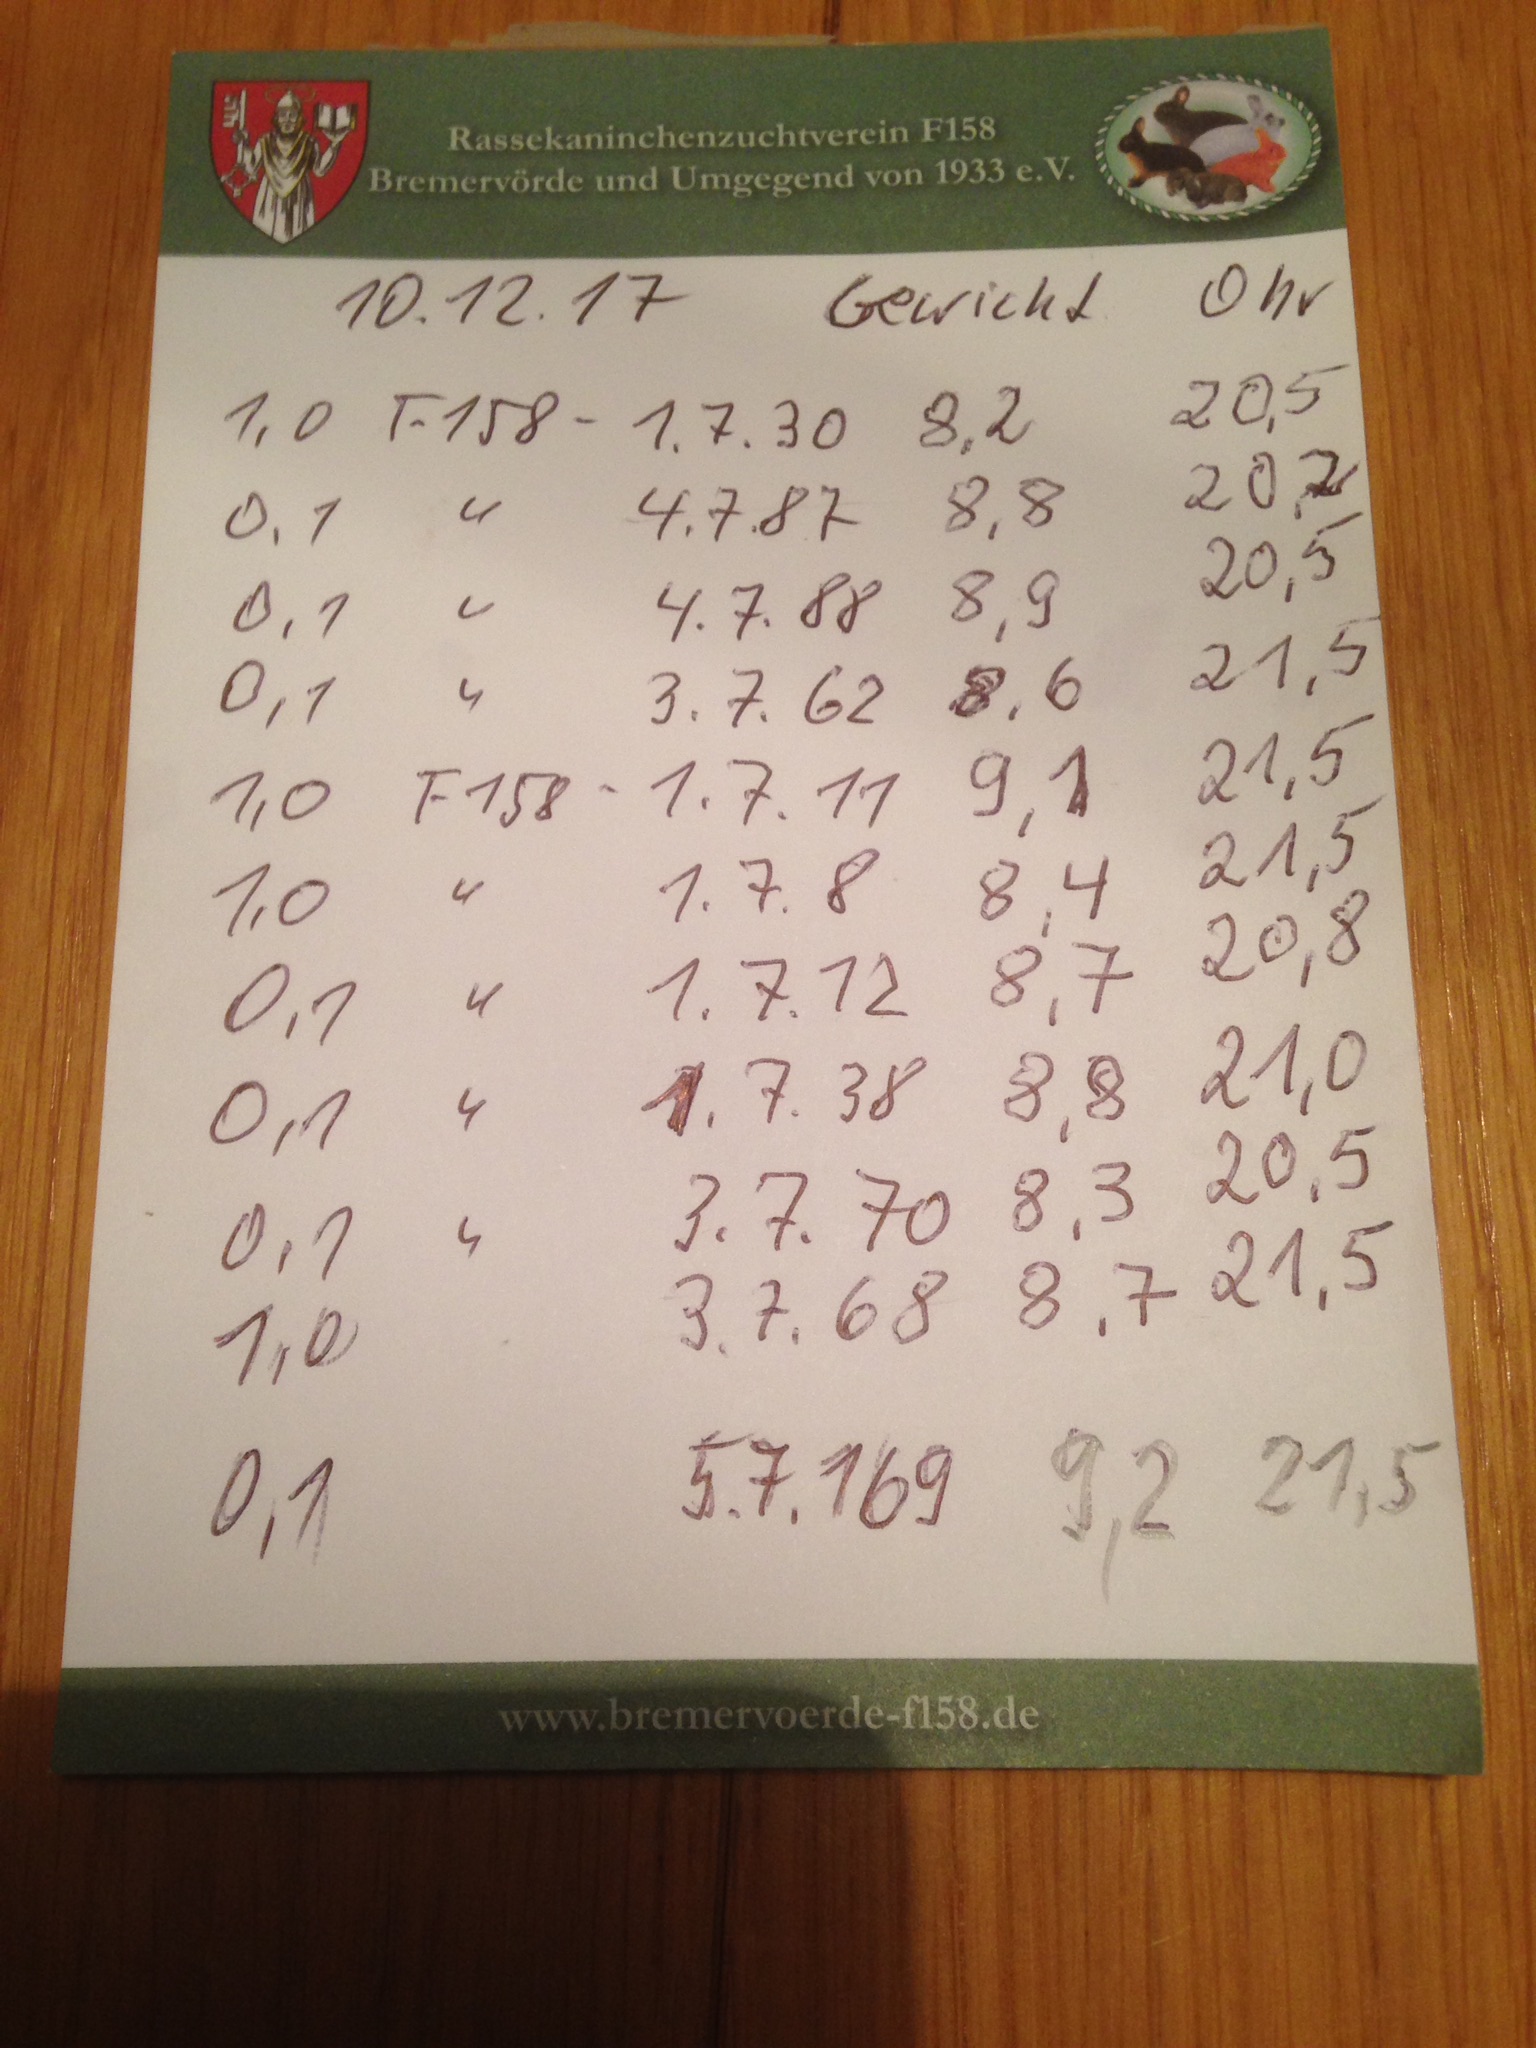 Rassekaninchenzuchtverein F158
Bremervörde und Umgegend von 1933 e.V.
10.12.17 Gewicht Ohr
1,0 F-158 - 1.7.30 8,2 20,5
0,1 " 4.7.87 8,8 20,2
0,1 " 4.7.88 8,9 20,5
0,1 " 3.7.62 8,6 21,5
1,0 F-158 - 1.7.11 9,1 21,5
1,0 " 1.7.8 8,4 21,5
0,1 " 1.7.12 8,7 20,8
0,1 " 1.7.38 8,8 21,0
0,1 " 3.7.70 8,3 20,5
1,0 3.7.68 8,7 21,5
0,1 5.7.169 9,2 21,5
www.bremervoerde-f158.de